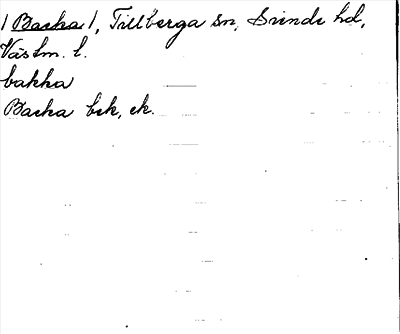 / Backa /, Tillberga sn, Siende hd,
Västm. l.
bakka
Backa bsk, ek.